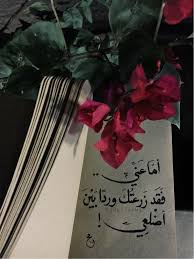 أمَا عَنّي ..
فَقد زَرعتُك وردًا بَيْن
أضْلعِي !